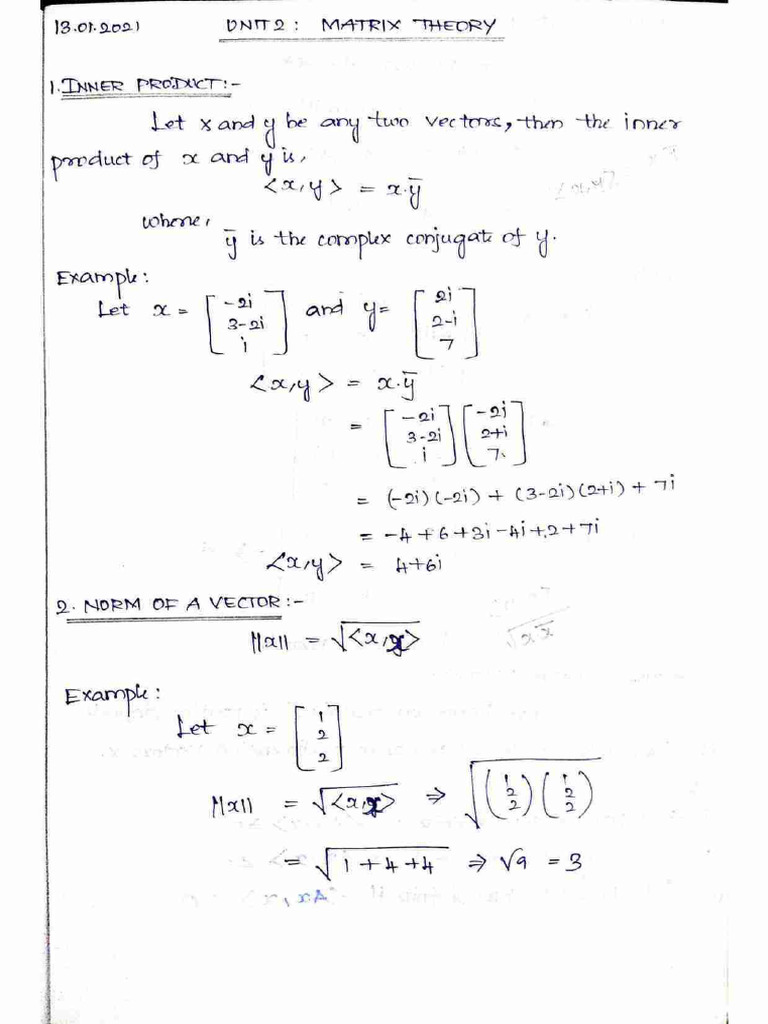 13.01.2021 UNIT 2 : MATRIX THEORY
1. INNER PRODUCT :-
Let x and y be any two vectors, then the inner
product of x and y is,
<x,y> = x.ȳ
where,
ȳ is the complex conjugate of y.
Example :
Let x = [-2i 3-2i i] and y = [2i 2-i 7]
<x,y> = x.ȳ
= [-2i 3-2i i] [-2i 2+i 7]
= (-2i)(-2i) + (3-2i)(2+i) + 7i
= -4+6+3i-4i+2+7i
<x,y> = 4+6i
2. NORM OF A VECTOR :-
||x|| = √<x,x>
Example :
Let x = [1 2 2]
||x|| = √<x,x> ⇒ √(1 2 2)(1 2 2)
= √1+4+4 ⇒ √9 = 3